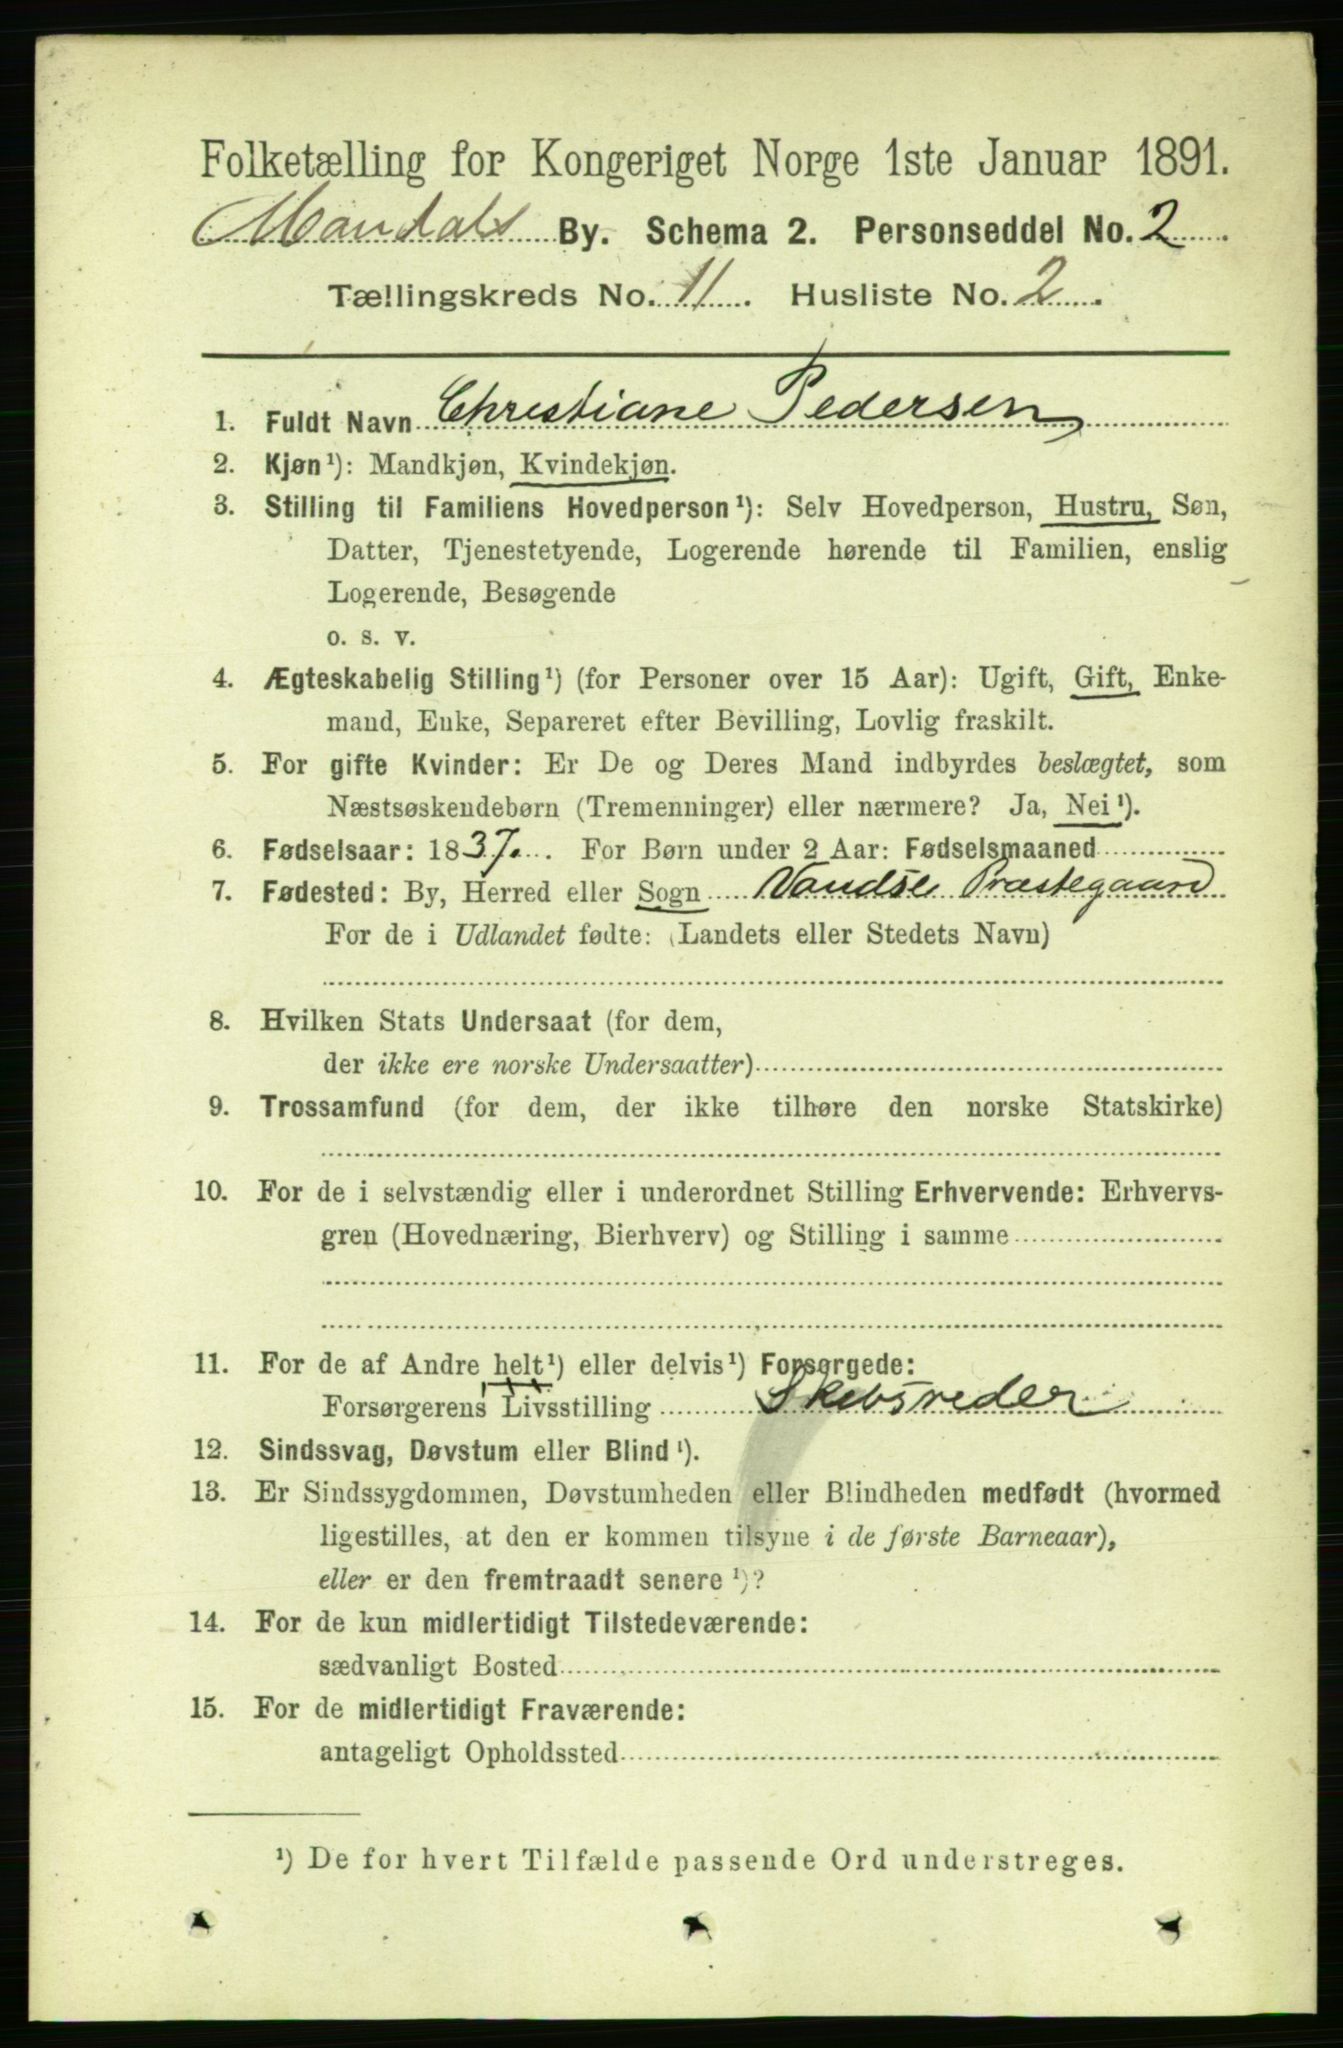 Folketælling for Kongeriget Norge 1ste Januar 1891.
Mandals By. Schema 2. Personseddel No. 2
Tællingskreds No. 11. Husliste No. 2.
1. Fuldt Navn Christiane Pedersen
2. Kjøn¹): Mandkjøn, Kvindekjøn.
3. Stilling til Familiens Hovedperson¹): Selv Hovedperson, Hustru, Søn,
Datter, Tjenestetyende, Logerende hørende til Familien, enslig
Logerende, Besøgende
o. s. v.
4. Ægteskabelig Stilling¹) (for Personer over 15 Aar): Ugift, Gift, Enke-
mand, Enke, Separeret efter Bevilling, Lovlig fraskilt.
5. For gifte Kvinder: Er De og Deres Mand indbyrdes beslægtet, som
Næstsøskendebørn (Tremenninger) eller nærmere? Ja, Nei¹).
6. Fødselsaar: 1837. For Børn under 2 Aar: Fødselsmaaned
7. Fødested: By, Herred eller Sogn Vandse Præstegaard
For de i Udlandet fødte: (Landets eller Stedets Navn)
8. Hvilken Stats Undersaat (for dem,
der ikke ere norske Undersaatter)
9. Trossamfund (for dem, der ikke tilhøre den norske Statskirke)
10. For de i selvstændig eller i underordnet Stilling Erhvervende: Erhvervs-
gren (Hovednæring, Bierhverv) og Stilling i samme
11. For de af Andre helt¹) eller delvis¹) Forsørgede:
Forsørgerens Livsstilling Skibsreder
12. Sindssvag, Døvstum eller Blind¹).
13. Er Sindssygdommen, Døvstumheden eller Blindheden medfødt (hvormed
ligestilles, at den er kommen tilsyne i de første Barneaar),
eller er den fremtraadt senere¹)?
14. For de kun midlertidigt Tilstedeværende:
sædvanligt Bosted
15. For de midlertidigt Fraværende:
antageligt Opholdssted
¹) De for hvert Tilfælde passende Ord understreges.